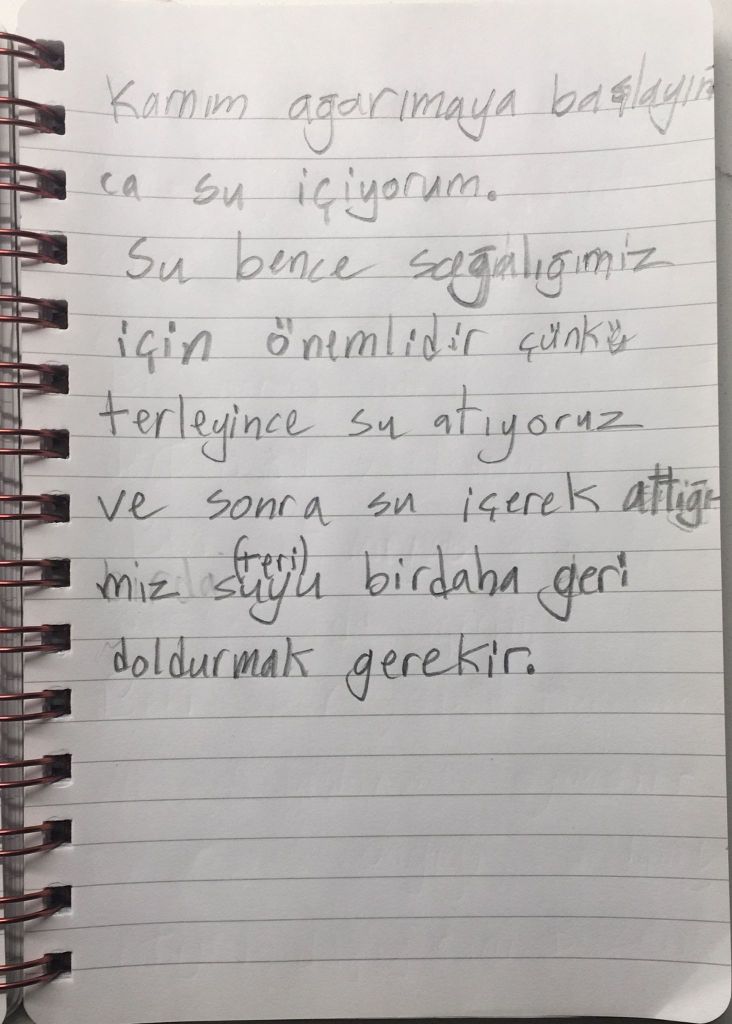 Karnım ağarımaya başlayın
ca su içiyorum.
Su bence sağalığımiz
için önemlidir çünkü
terleyince su atıyoruz
ve sonra su içerek attığı
miz suyu (teri) birdaha geri
doldurmak gerekir.